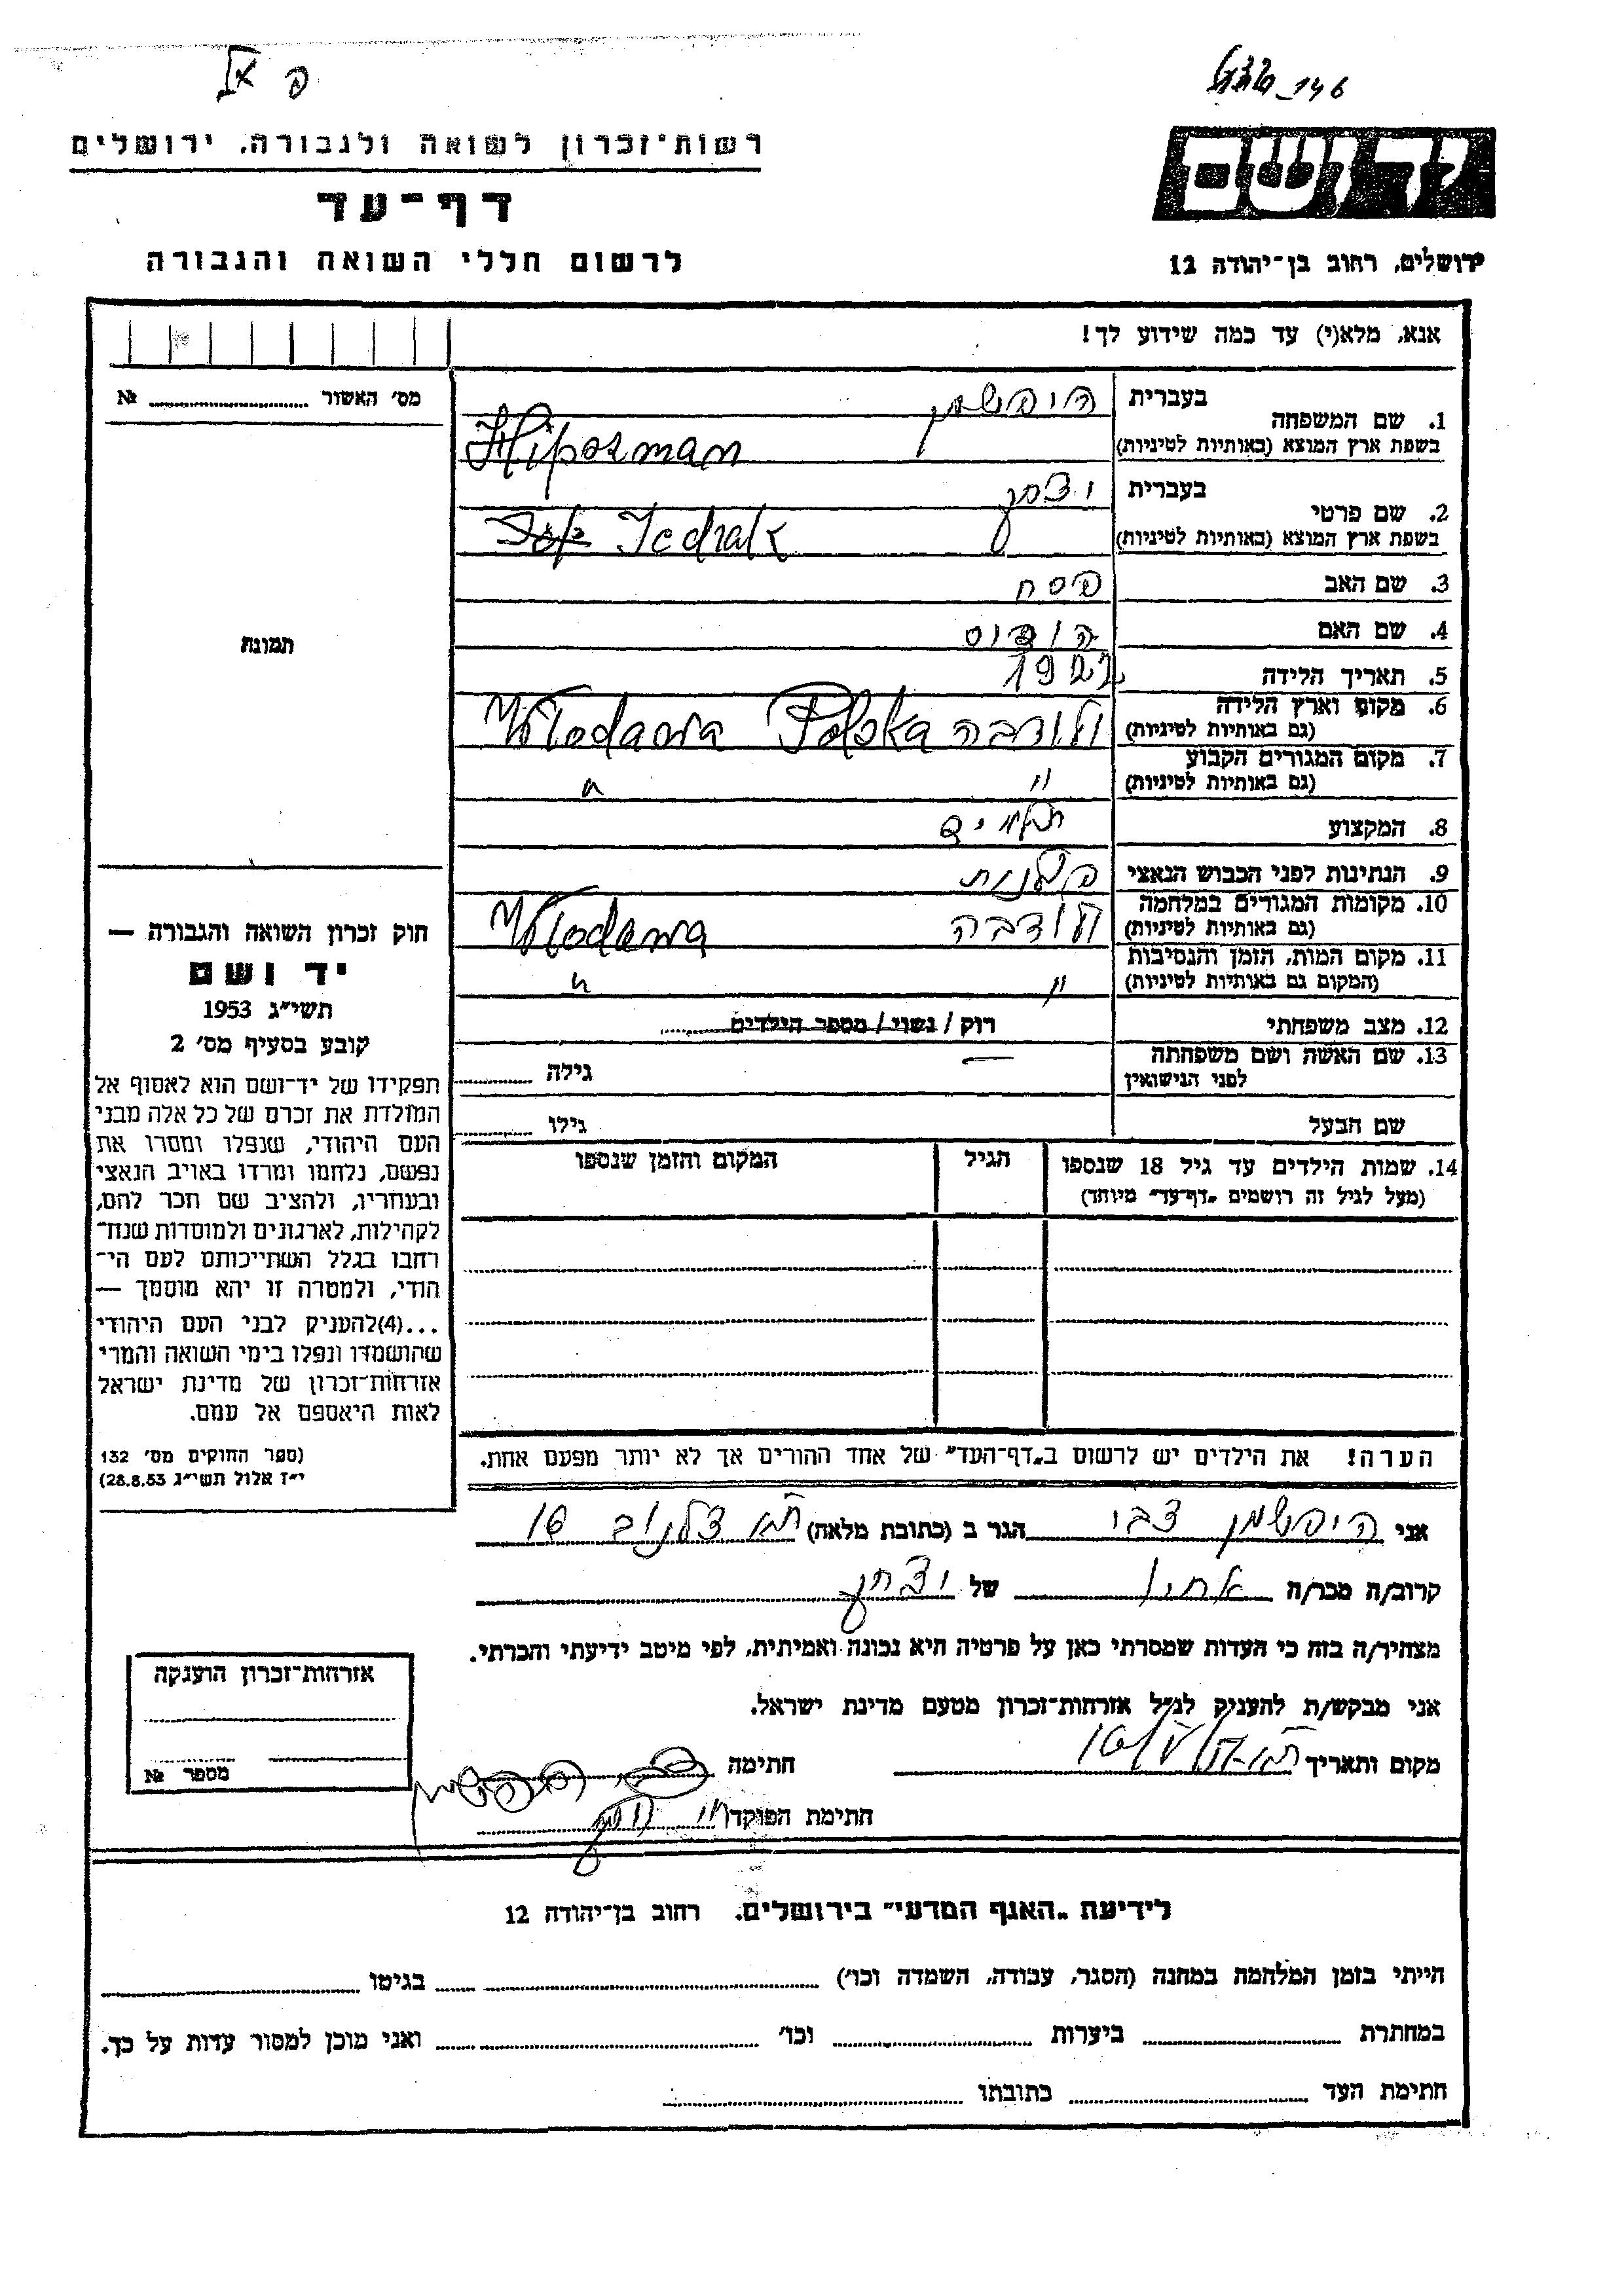 רשות־זכרון לשואה ולגבורה, ירושלים
דף־עד
לרשום חללי השואה והגבורה
יד ושם
ירושלים, רחוב בן־יהודה 12
אנא, מלא(י) עד כמה שידוע לך!
מס׳ האשור № ............
תמונה
1. שם המשפחה בעברית היפשמן
בשפת ארץ המוצא (באותיות לטיניות) Hipszman
2. שם פרטי בעברית יצחק
בשפת ארץ המוצא (באותיות לטיניות) Icchak
3. שם האב פסח
4. שם האם
5. תאריך הלידה 1922
6. מקום וארץ הלידה (גם באותיות לטיניות) ולודבה Włodawa Polska
7. מקום המגורים הקבוע (גם באותיות לטיניות) " "
8. המקצוע
9. הנתינות לפני הכבוש הנאצי פולנית
10. מקומות המגורים במלחמה (גם באותיות לטיניות) ולודבה Włodawa
11. מקום המות, הזמן והנסיבות (המקום גם באותיות לטיניות) " "
12. מצב משפחתי רוק / נשוי / מספר הילדים
13. שם האשה ושם משפחתה לפני הנישואין — גילה
שם הבעל גילו
14. שמות הילדים עד גיל 18 שנספו הגיל המקום והזמן שנספו
(מעל לגיל זה רושמים „דף־עד״ מיוחד)
חוק זכרון השואה והגבורה —
יד ושם
תשי״ג 1953
קובע בסעיף מס׳ 2
תפקידו של יד־ושם הוא לאסוף אל
המולדת את זכרם של כל אלה מבני
העם היהודי, שנפלו ומסרו את
נפשם, נלחמו ומרדו באויב הנאצי
ובעוזריו, ולהציב שם וזכר להם,
לקהילות, לארגונים ולמוסדות שנח־
רבו בגלל השתייכותם לעם הי־
הודי, ולמטרה זו יהא מוסמך —
...(4)להעניק לבני העם היהודי
שהושמדו ונפלו בימי השואה והמרי
אזרחות־זכרון של מדינת ישראל
לאות היאספם אל עמם.
(ספר החוקים מס׳ 132
י״ז אלול תשי״ג 28.8.53)
הערה! את הילדים יש לרשום ב„דף־העד״ של אחד ההורים אך לא יותר מפעם אחת.
אני היפשמן צבי הגר ב (כתובת מלאה) ת״א צלנוב 16
קרוב/ה מכר/ה אחיו של יצחק
מצהיר/ה בזה כי העדות שמסרתי כאן על פרטיה היא נכונה ואמיתית, לפי מיטב ידיעתי והכרתי.
אני מבקש/ת להעניק לנ״ל אזרחות־זכרון מטעם מדינת ישראל.
מקום ותאריך חתימה
חתימת הפוקד
אזרחות־זכרון הוענקה
מספר №
לידיעת „האגף המדעי״ בירושלים, רחוב בן־יהודה 12
הייתי בזמן המלחמה במחנה (הסגר, עבודה, השמדה וכו׳) בגיטו
במחתרת ביערות וכו׳ ואני מוכן למסור עדות על כך.
חתימת העד כתובתו